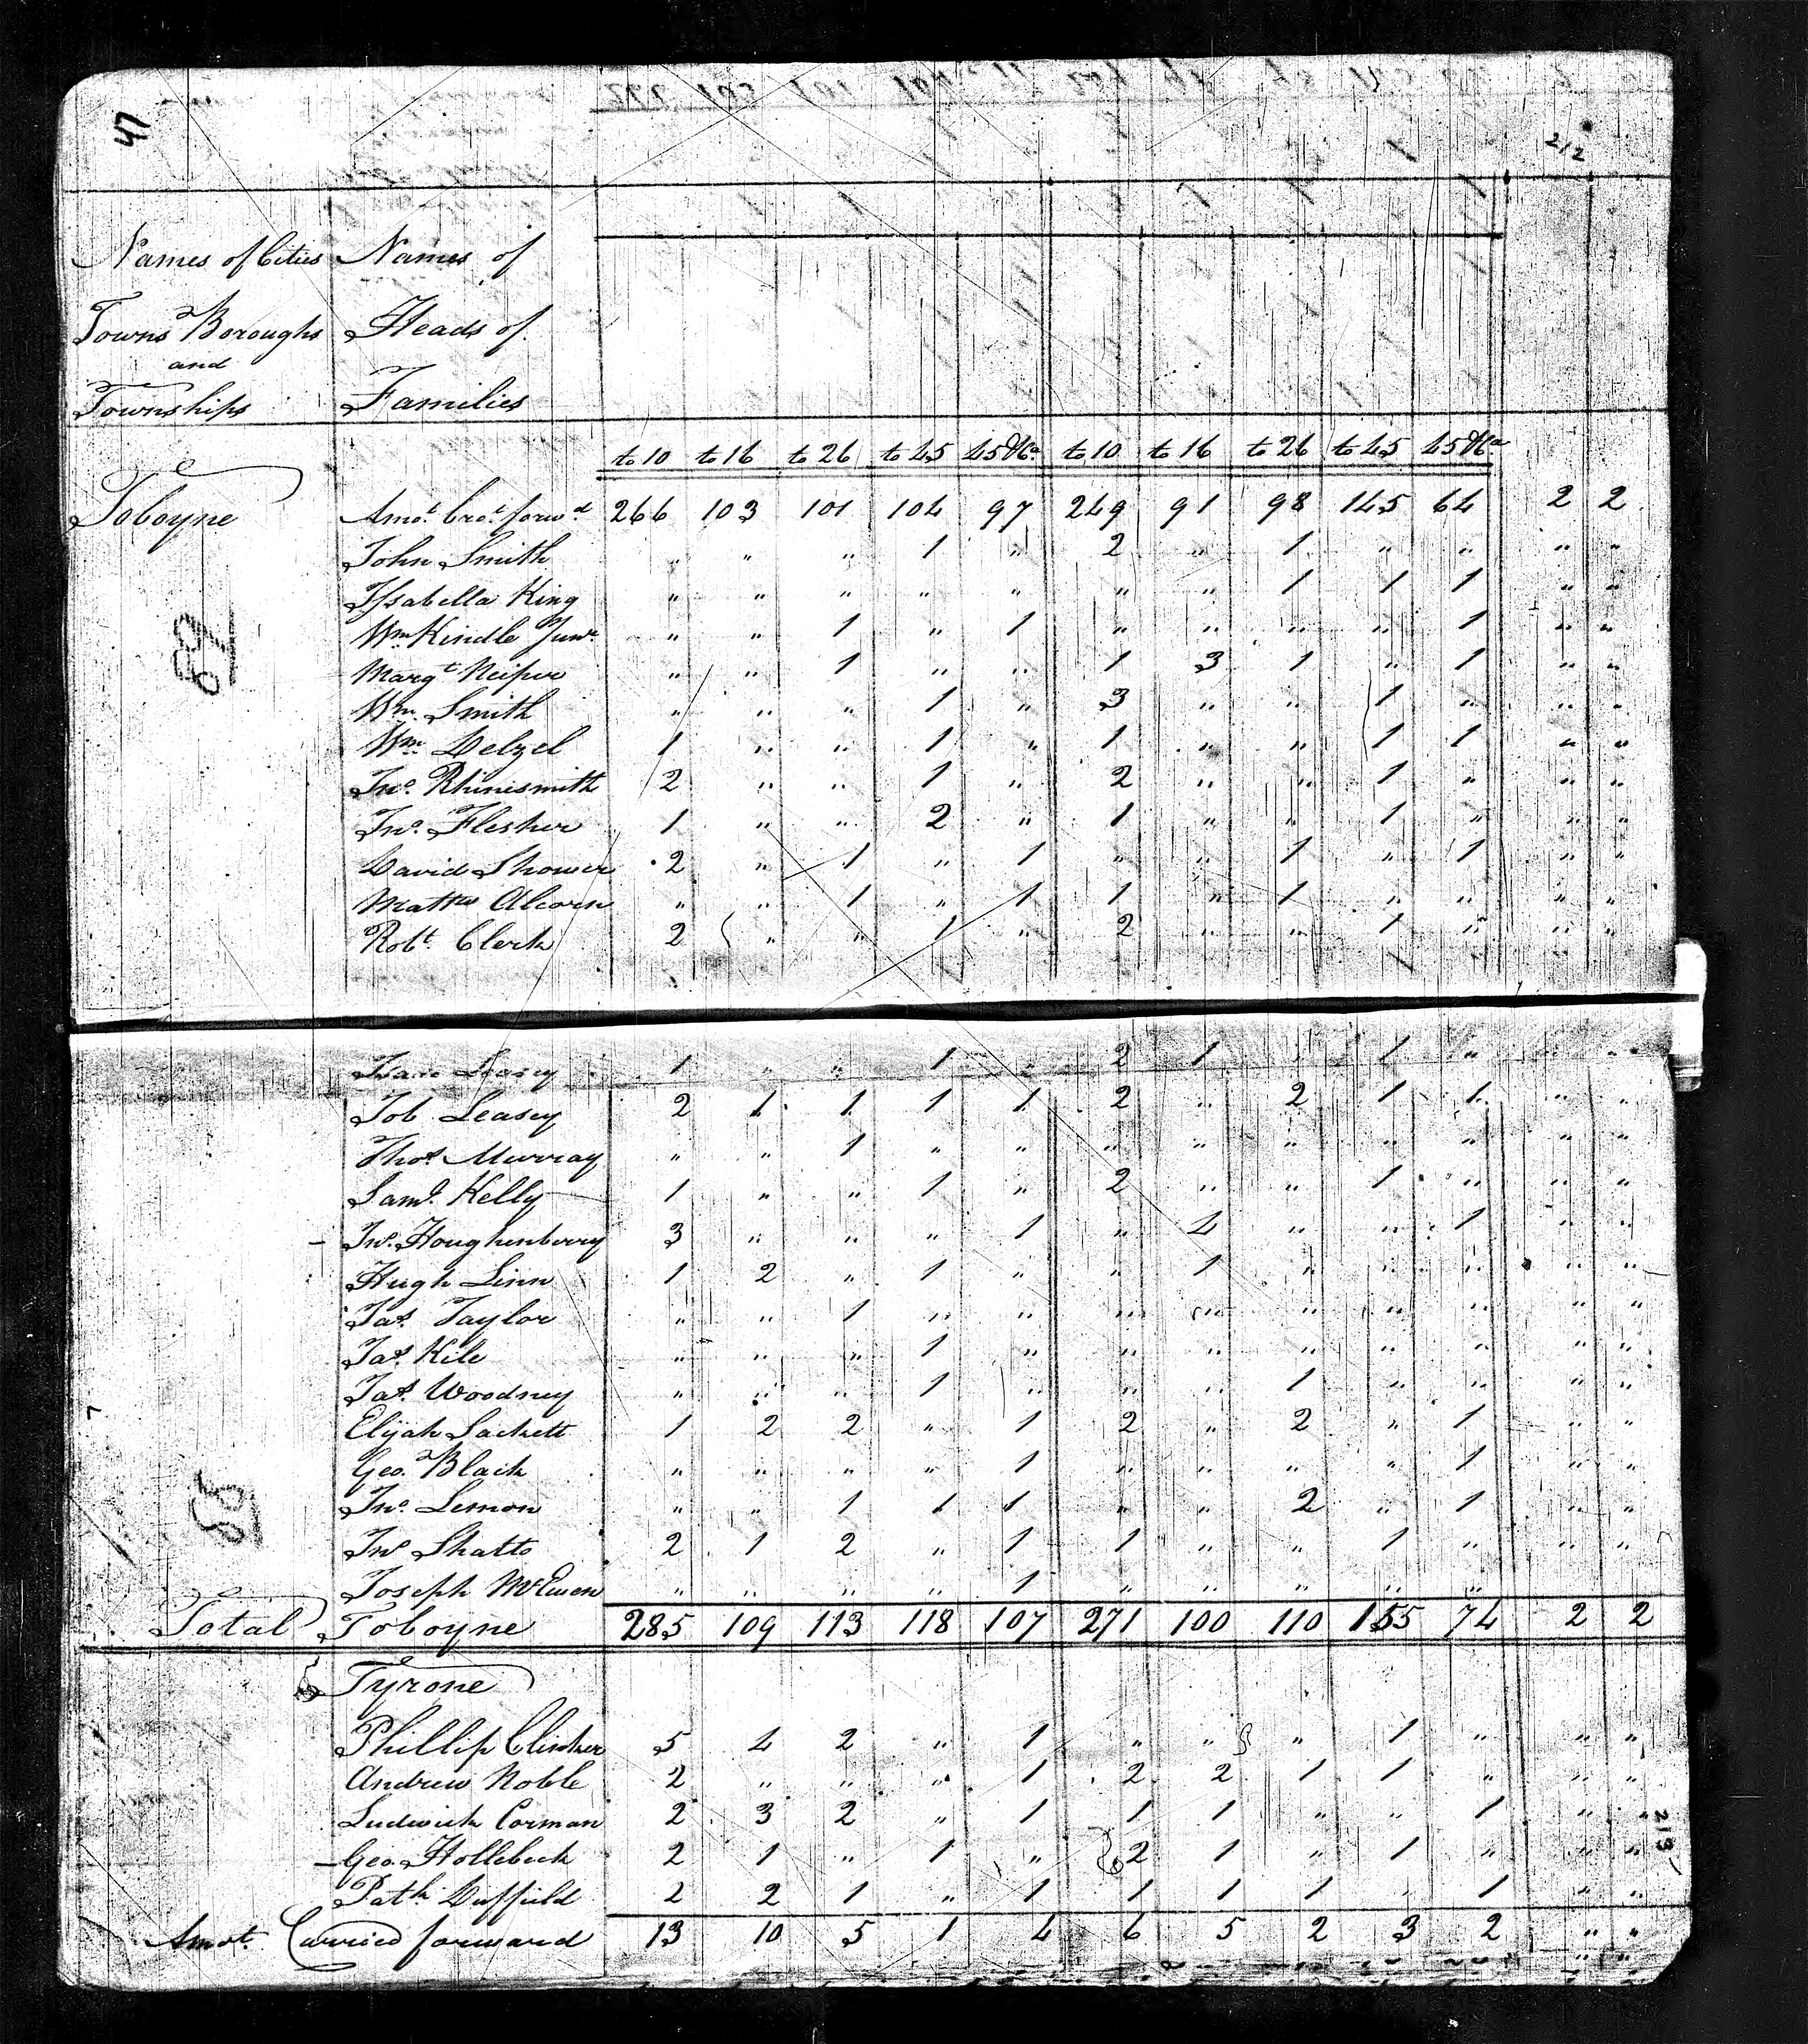 47
212
Names of Cities Names of
Towns Boroughs Heads of
and
Townships Families
to 10 to 16 to 26 to 45 45 &ca to 10 to 16 to 26 to 45 45 &ca
Toboyne Amot. brot. forwd. 266 103 101 104 97 249 91 98 145 64 2 2
John Smith " " " 1 " 2 " 1 " " " "
Issabella King " " " " " " " 1 1 1 " "
Wm Kindle Junr " " 1 " 1 " " " " 1 " "
Margt Neiper " " 1 " " 1 3 1 " 1 " "
Wm. Smith " " " 1 " 3 " " 1 " " "
Wm Delzel 1 " " 1 " 1 " " 1 1 " "
Jno. Rhinesmith 2 " " 1 " 2 " " 1 " " "
Jno. Flesher 1 " " 2 " 1 " " 1 " " "
David Shower 2 " 1 " 1 " " 1 " 1 " "
Matthw Alcorn " " 1 " 1 1 " 1 " " " "
Robt. Clerk 2 " " 1 " 2 " " 1 " " "
1 " " 1 " 2 1 " 1 " " "
Job Leasey 2 1 1 1 1 2 " 2 1 1 " "
Thos. Murray " " 1 " " " " " " " " "
Saml. Kelly 1 " " 1 " 2 " " 1 " " "
Jno. Houghenberry 3 " " " 1 " 4 " " 1 " "
Hugh Linn 1 2 " 1 " " 1 " " " " "
Jas. Taylor " " 1 " " " " " " " " "
Jas. Kile " " " 1 " " " " " " " "
Jas. Woodney " " " 1 " " " 1 " " " "
Elijah Sackett 1 2 2 " 1 2 " 2 " 1 " "
Geo. Black " " " " 1 " " " " 1 " "
Jno. Lemon " " 1 1 1 " " 2 " 1 " "
Jno Shatto 2 1 2 " 1 1 " " 1 " " "
Joseph McEwen " " " " 1 " " " " "
Total Toboyne 285 109 113 118 107 271 100 110 155 74 2 2
Tyrone
Phillip Clinker 5 4 2 " 1 " " " 1 " " "
Andrew Noble 2 " " " 1 2 2 1 1 " " "
Ludwick Corman 2 3 2 " 1 1 1 " " 1 " "
213
Geo. Hollebeck 2 1 " 1 " 2 1 " 1 " " "
Patk. Duffield 2 2 1 " 1 1 1 1 " 1 " "
Amot. Carried forward 13 10 5 1 4 6 5 2 3 2 " "